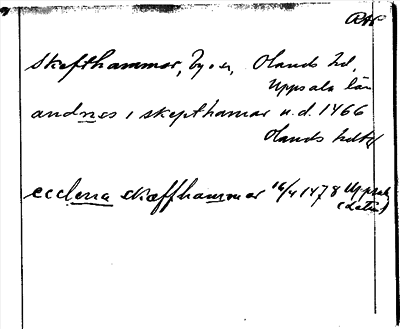 RAP
Skefthammar, by o sn, Olands hd,
Uppsala län
andnes i skepthamar u.d. 1466
Olands hdbf
ecclesia skæffhammar 16/4 1478 Uppsala
(latin)